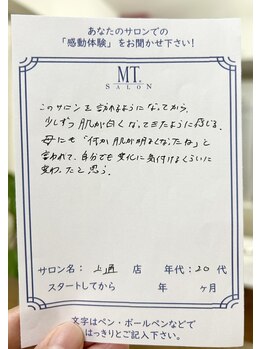 あなたのサロンでの
「感動体験」をお聞かせ下さい!
MT.
SALON
このサロンを訪れるようになってから、
少しずつ肌が白くなってきたように感じる。
母にも「何か肌が明るくなったね」と
言われて、自分でも変化に気付けるくらいに
変わったと思う。
サロン名: 上通 店 年代: 20 代
スタートしてから 年 ヶ月
文字はペン・ボールペンなどで
はっきりとご記入下さい。